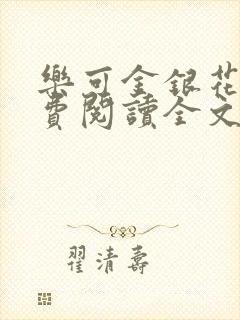 樂可金銀花
費閱讀全文
翟清壽